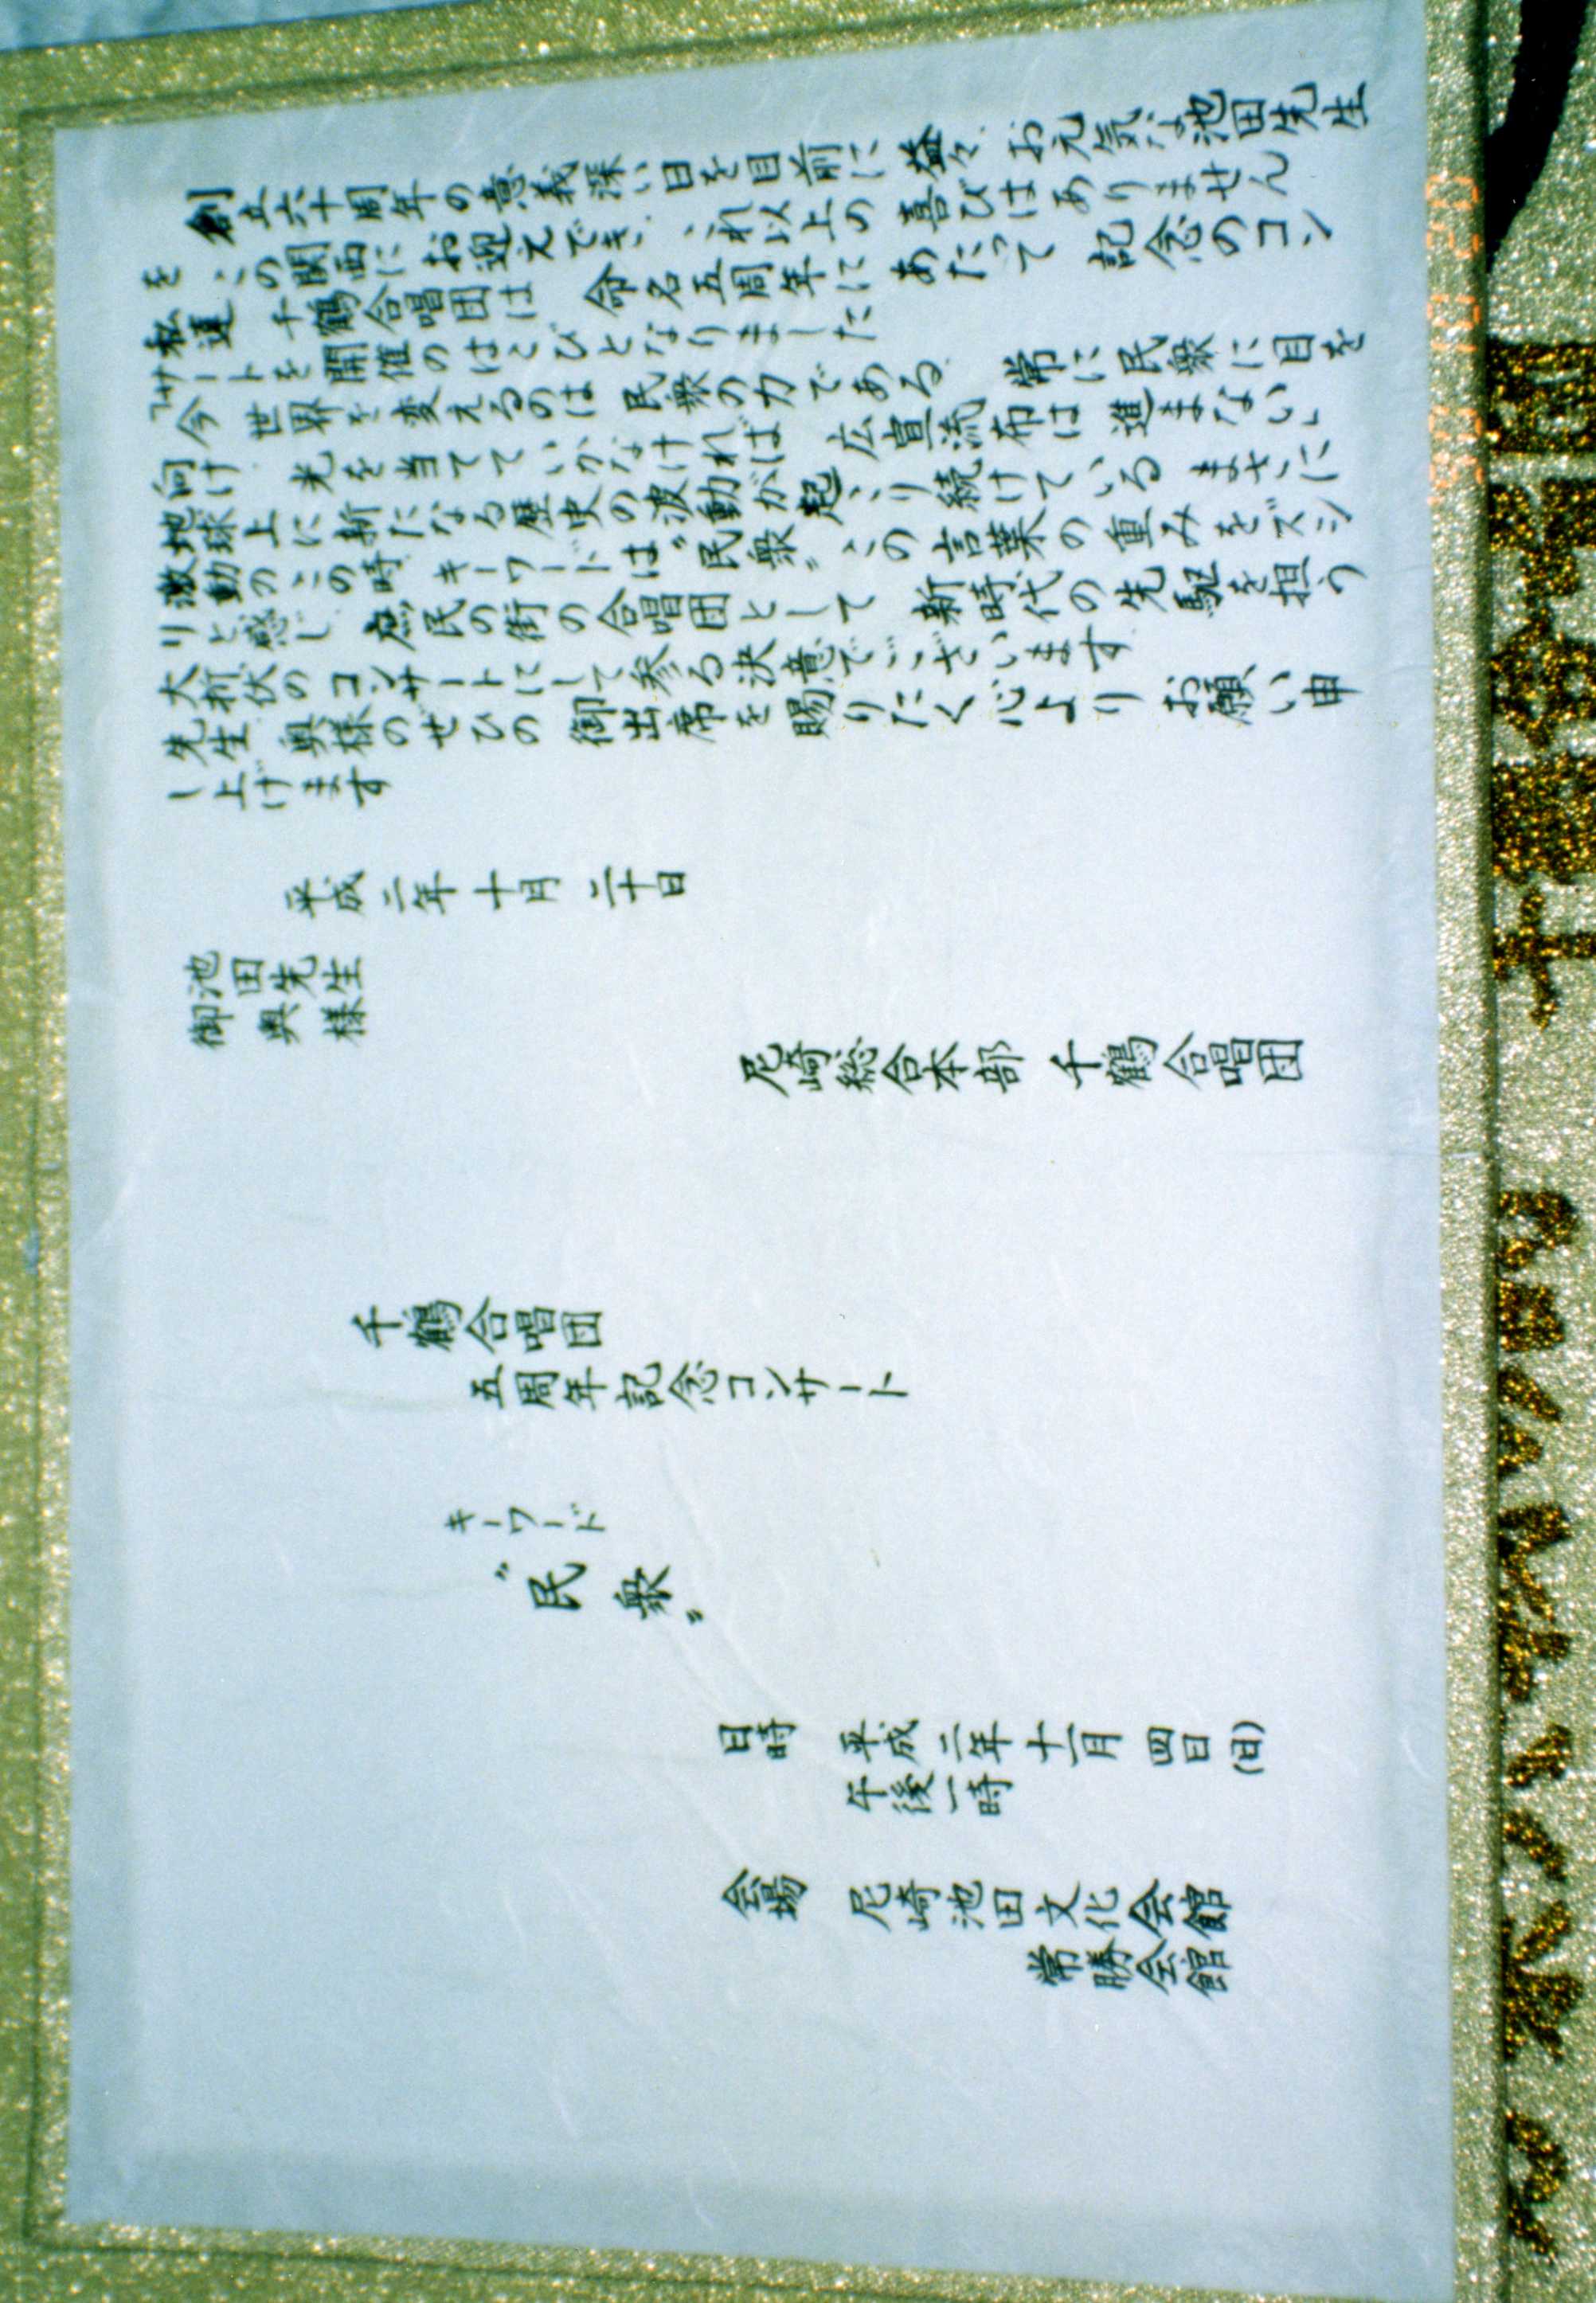 創立六十周年の意義深い日を目前に 益々 お元気な池田先生
を この関西に お迎えでき、これ以上の 喜びはありません
私達 千鶴合唱団は 命名五周年に あたって 記念のコン
サートを開催のはこびとなりました
「今 世界を変えるのは 民衆の力である 常に民衆に目を
向け 光を当てていかなければ 広宣流布は 進まない」
地球上に新たなる歴史の波動が起こり続けている まさに
激動のこの時 キーワードは〝民衆〟この言葉の重みをズシ
リと感じ 庶民の街の合唱団として 新時代の先駆を担う
大折伏のコンサートにして参る決意でございます
先生 奥様のぜひの 御出席を賜りたく心より お願い申
し上げます
平成二年十月二十日
池田先生
御奥様
尼崎総合本部 千鶴合唱団
千鶴合唱団
五周年記念コンサート
キーワード
〝民衆〟
日時 平成二年十一月四日(日)
午後一時
会場 尼崎池田文化会館
常勝会館
'90 10 20